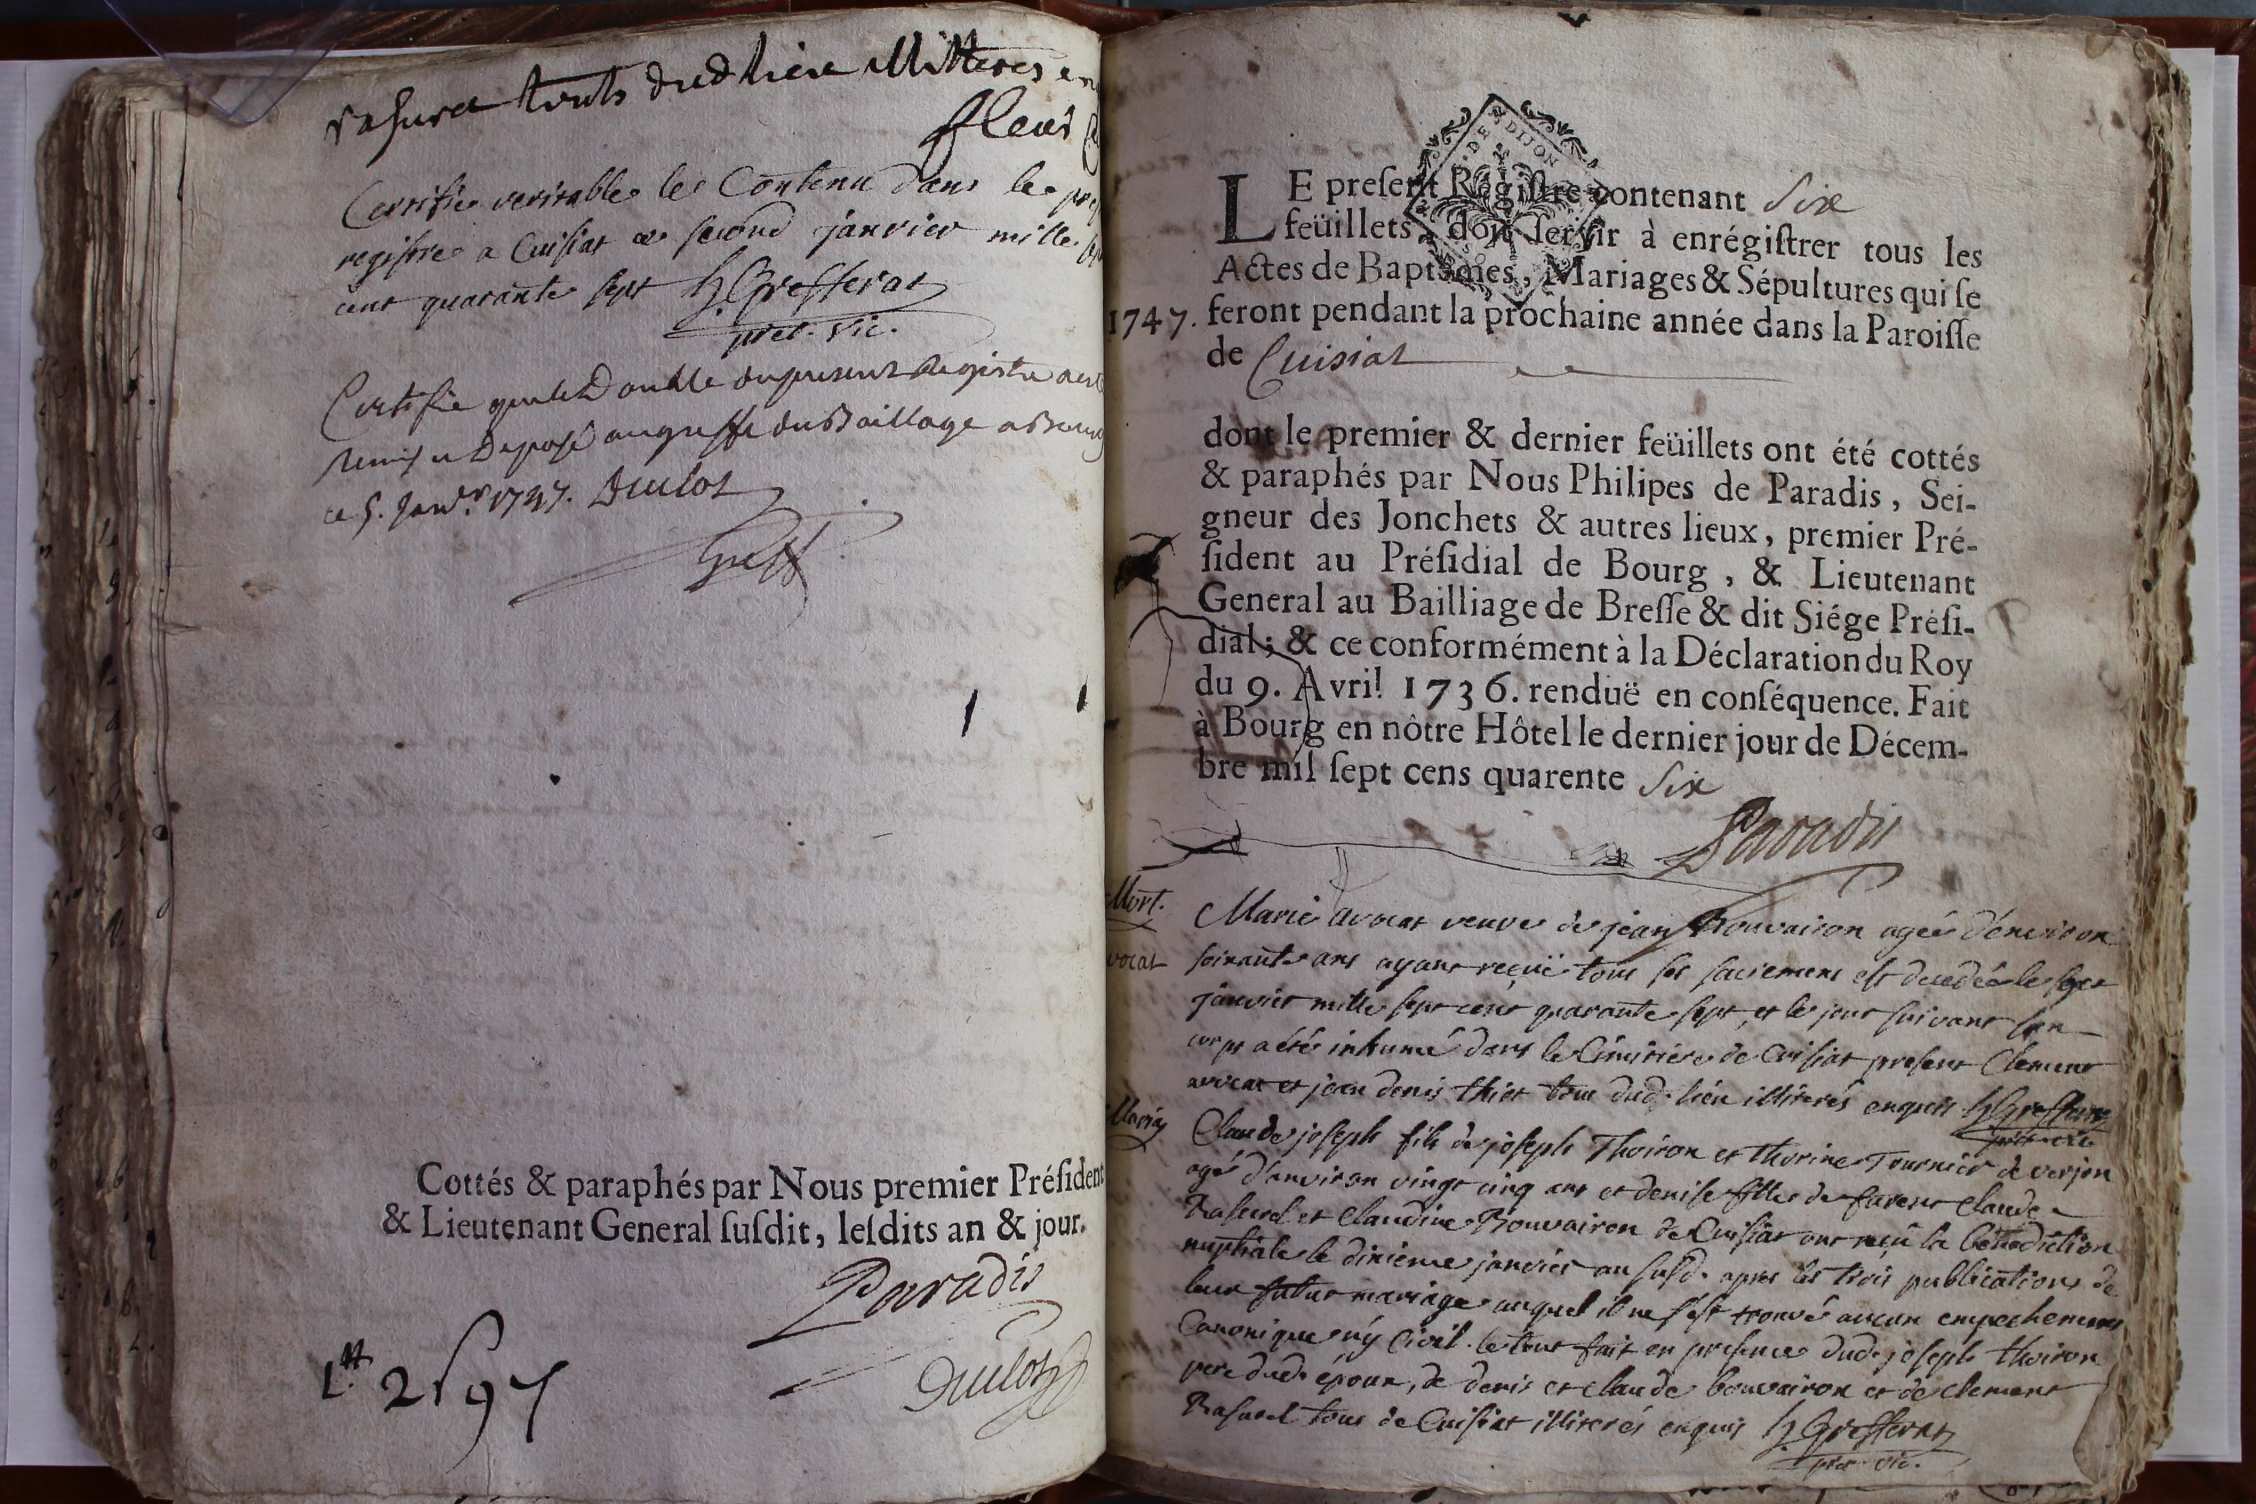 rasurel touts dud lieu illiterés en
fleur
Certifie veritable le Contenu dans le
registre a Cuisiat ce second janvier mille
cent quarante sept h. Grefferat
pret. vic.
Certifie que le Double du present Registre a esté
remis et Deposé au greffe du Baillage a Bourg
ce 5. Janv.r 1747. Duclos
Greff
Cottés & paraphés par Nous premier Préſident
& Lieutenant General ſuſdit, leſdits an & jour.
Paradis
Duclos
G. DE DIJON
LE preſent Régiſtre contenant Six
feüillets, doit ſervir à enrégiſtrer tous les
Actes de Baptêmes, Mariages & Sépultures qui ſe
1747. feront pendant la prochaine année dans la Paroiſſe
de Cuisiat
dont le premier & dernier feüillets ont été cottés
& paraphés par Nous Philipes de Paradis, Sei-
gneur des Jonchets & autres lieux, premier Pré-
ſident au Préſidial de Bourg, & Lieutenant
General au Bailliage de Breſſe & dit Siége Préſi-
dial; & ce conformément à la Déclaration du Roy
du 9. Avril 1736. renduë en conſéquence. Fait
à Bourg en nôtre Hôtel le dernier jour de Décem-
bre mil ſept cens quarente Six
Paradis
Mort. Marie avocat veuve de jean Bouvairon agée d'environ
vocat soixante ans ayant reçuë tous ses sacremens est decedée le sept
janvier mille sept cent quarante sept, et le jour suivant son
corps a été inhumé dans le Cimitière de Cuisiat present Clement
avocat et jean denis thiet tous dud. lieu illiterés enquis h Grefferat
pret. vic.
Mariag Claude joseph fils de joseph Thoiron et thorine Tournier de verjon
agé d'environ vingt cinq ans et denise fille de farent Claude
Rasurel et Claudine Bouvairon de Cuisiat ont reçu la benediction
nuptiale le dixieme janvier an susd. apres les trois publications de
leur futur mariage auquel il ne s'est trouvé aucun empechement
Canonique n'y Civil. le tout fait en presence dud. joseph thoiron
pere dud. époux, de denis et claude bouvairon et de Clement
Rasurel tous de Cuisiat illiterés enquis h Grefferat
pret. vic.